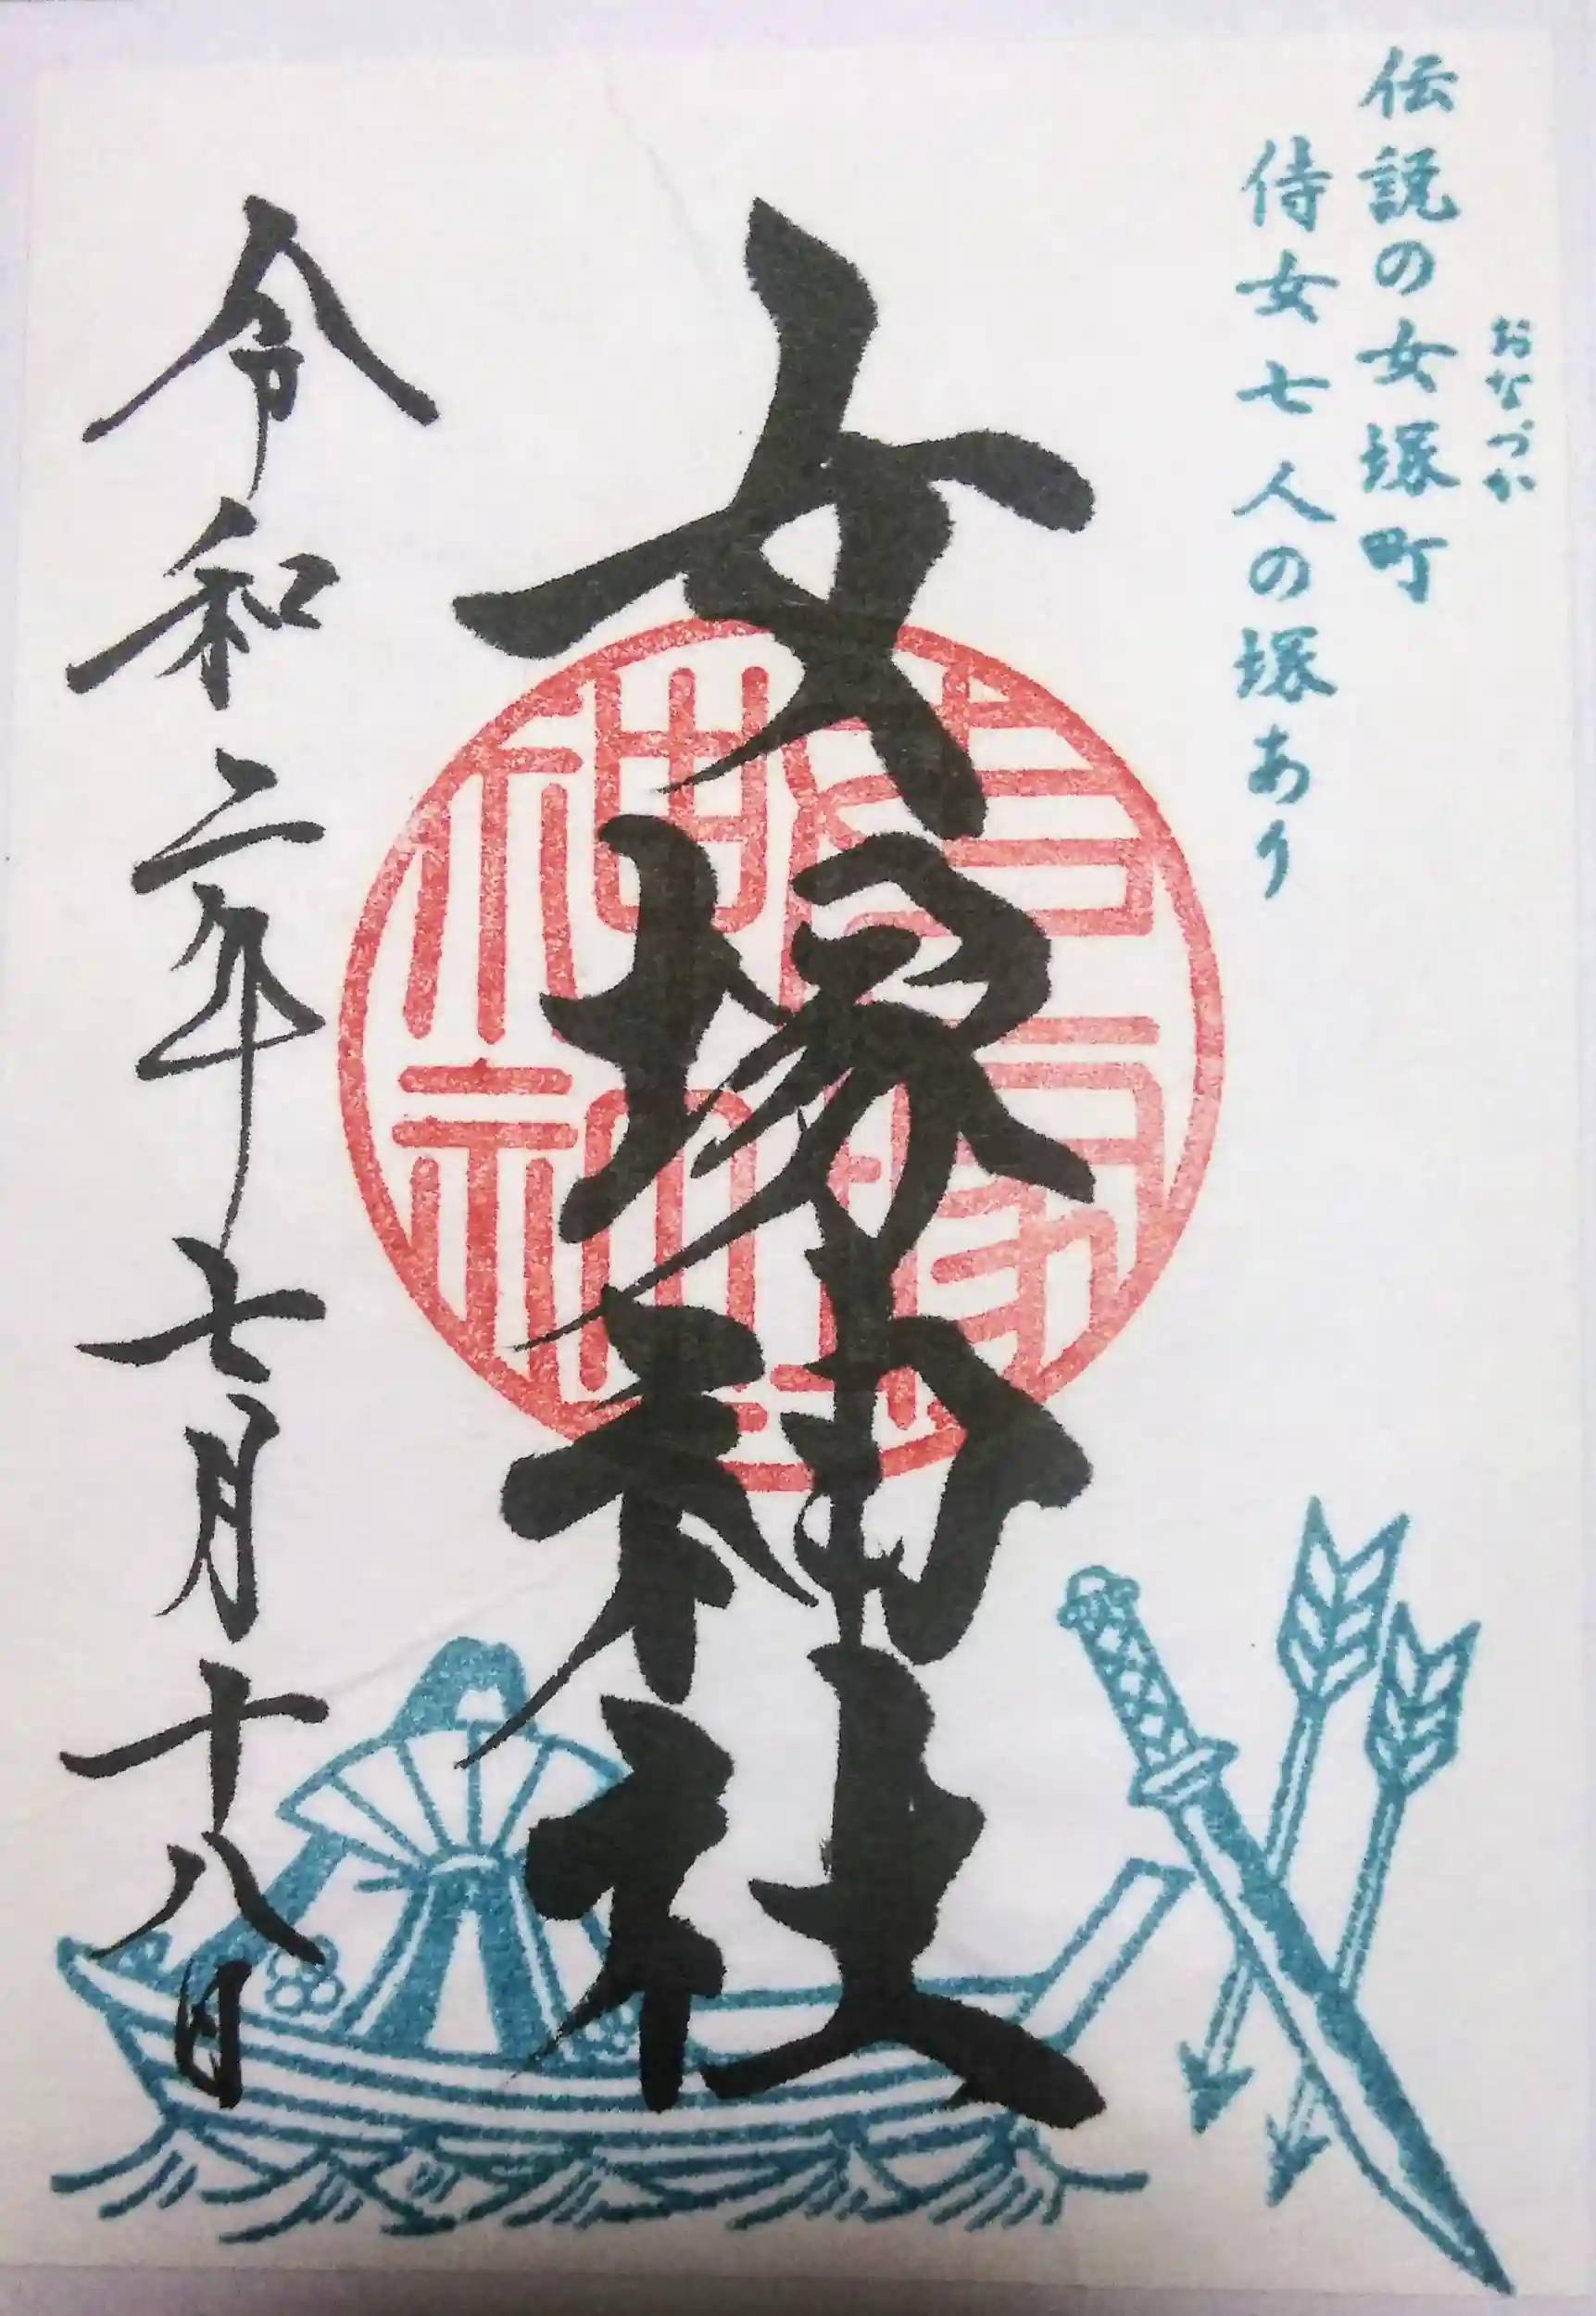 おなづか
伝説の女塚町
侍女七人の塚あり
女塚神社
令和二年七月十八日